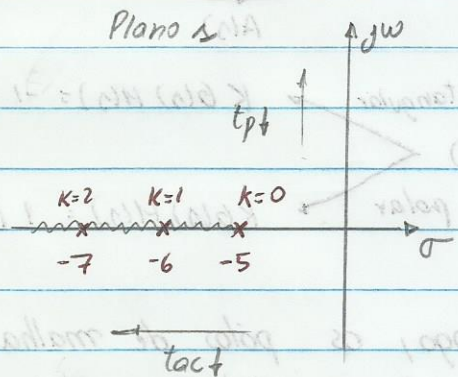 Plano s
jω
tp↓
K=2 K=1 K=0
-7 -6 -5
σ
tac↓